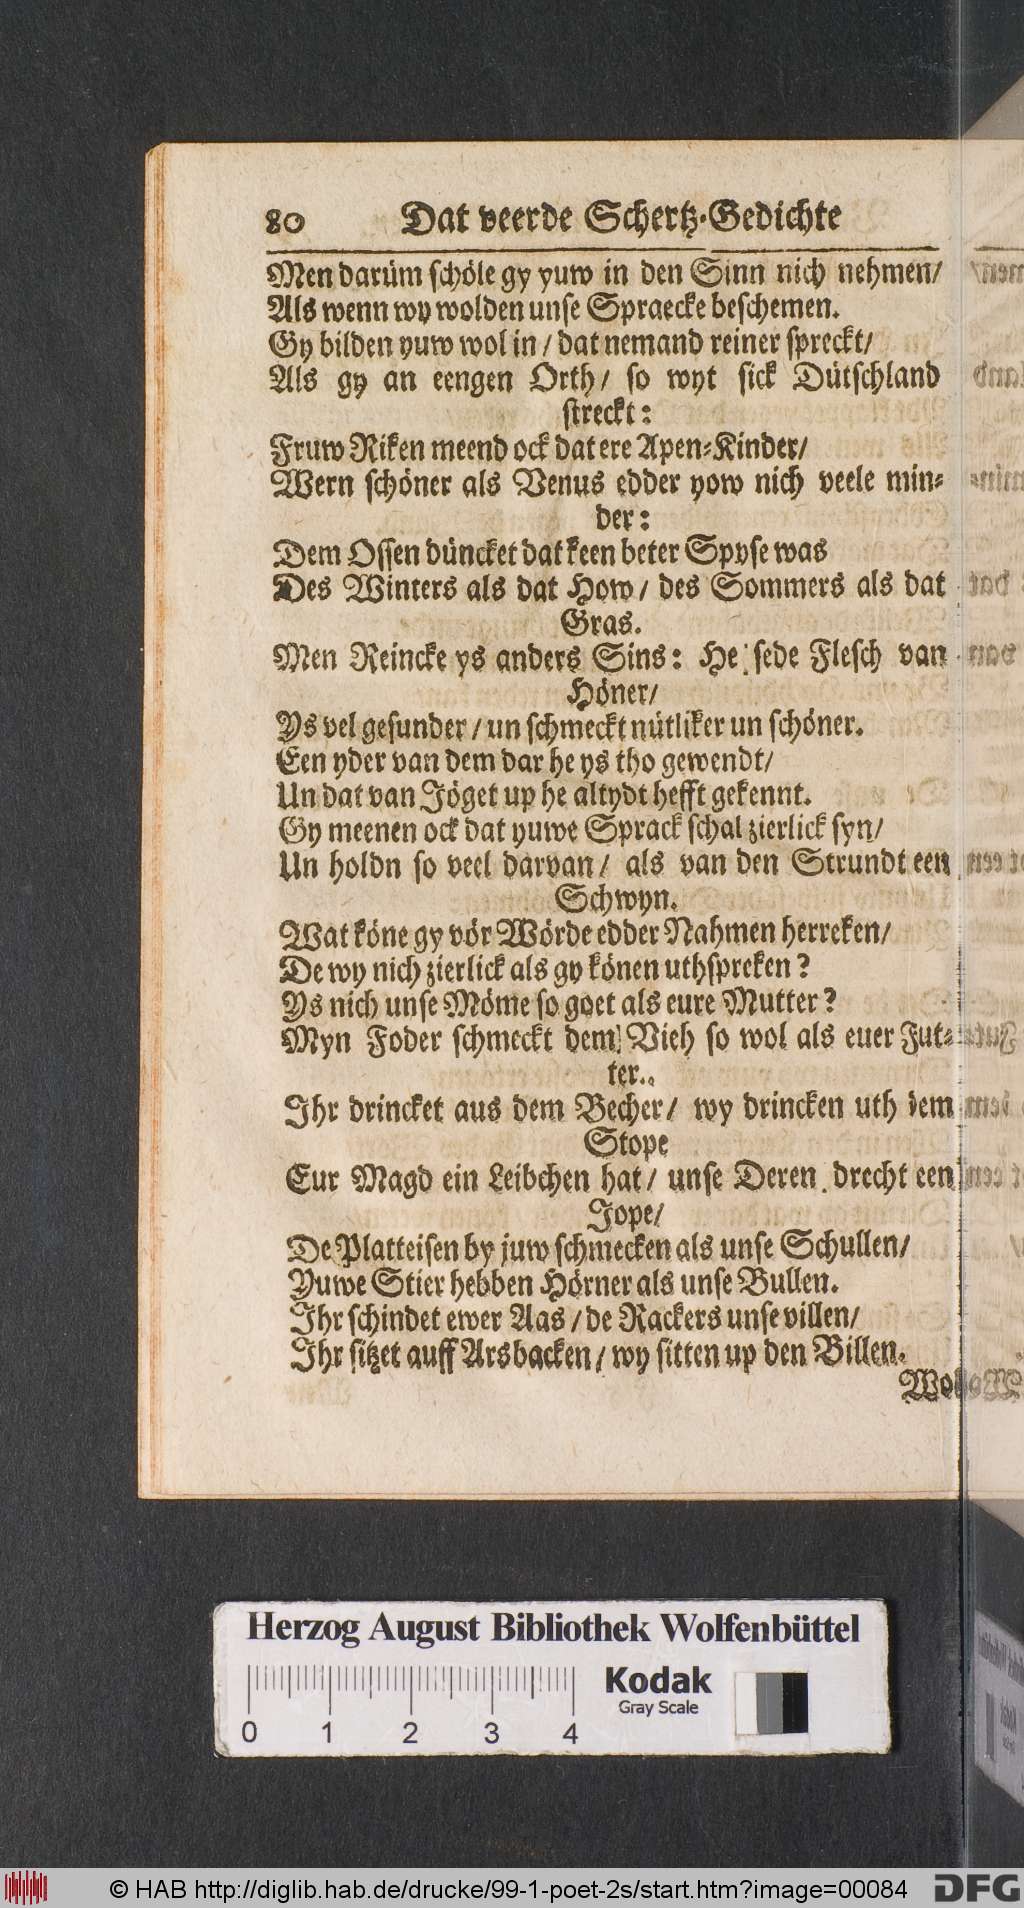 80 Dat veerde Schertz-Gedichte
Men darüm schöle gy yuw in den Sinn nich nehmen/
Als wenn wy wolden unse Spraecke beschemen.
Gy bilden yuw wol in / dat nemand reiner spreckt/
Als gy an eengen Orth/ so wyt sick Dütschland
streckt:
Fruw Riken meend ock dat ere Apen-Kinder/
Wern schöner als Venus edder yow nich veele min-
der:
Dem Ossen düncket dat keen beter Spyse was
Des Winters als dat How/ des Sommers als dat
Gras.
Men Reincke ys anders Sins: He sede Flesch van
Höner/
Ys vel gesunder / un schmeckt nütliker un schöner.
Een yder van dem dar he ys tho gewendt/
Un dat van Jöget up he altydt hefft gekennt.
Gy meenen ock dat yuwe Sprack schal zierlick syn/
Un holdn so veel darvan/ als van den Strundt een
Schwyn.
Wat köne gy vör Wörde edder Nahmen herreken/
De wy nich zierlick als gy könen uthspreken?
Ys nich unse Möme so goet als eure Mutter?
Myn Foder schmeckt dem Vieh so wol als euer Fut-
ter..
Ihr drincket aus dem Becher/ wy drincken uth dem
Stope
Eur Magd ein Leibchen hat/ unse Deren drecht een
Jope/
De Platteisen by juw schmecken als unse Schullen/
Yuwe Stier hebben Hörner als unse Bullen.
Ihr schindet ewer Aas / de Rackers unse villen/
Ihr sitzet auff Arsbacken / wy sitten up den Billen.
Herzog August Bibliothek Wolfenbüttel
Kodak
Gray Scale
0 1 2 3 4
© HAB http://diglib.hab.de/drucke/99-1-poet-2s/start.htm?image=00084
DFG